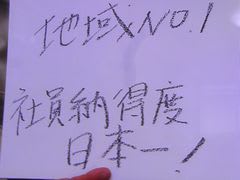 地域NO.1
社員納得度
日本一!